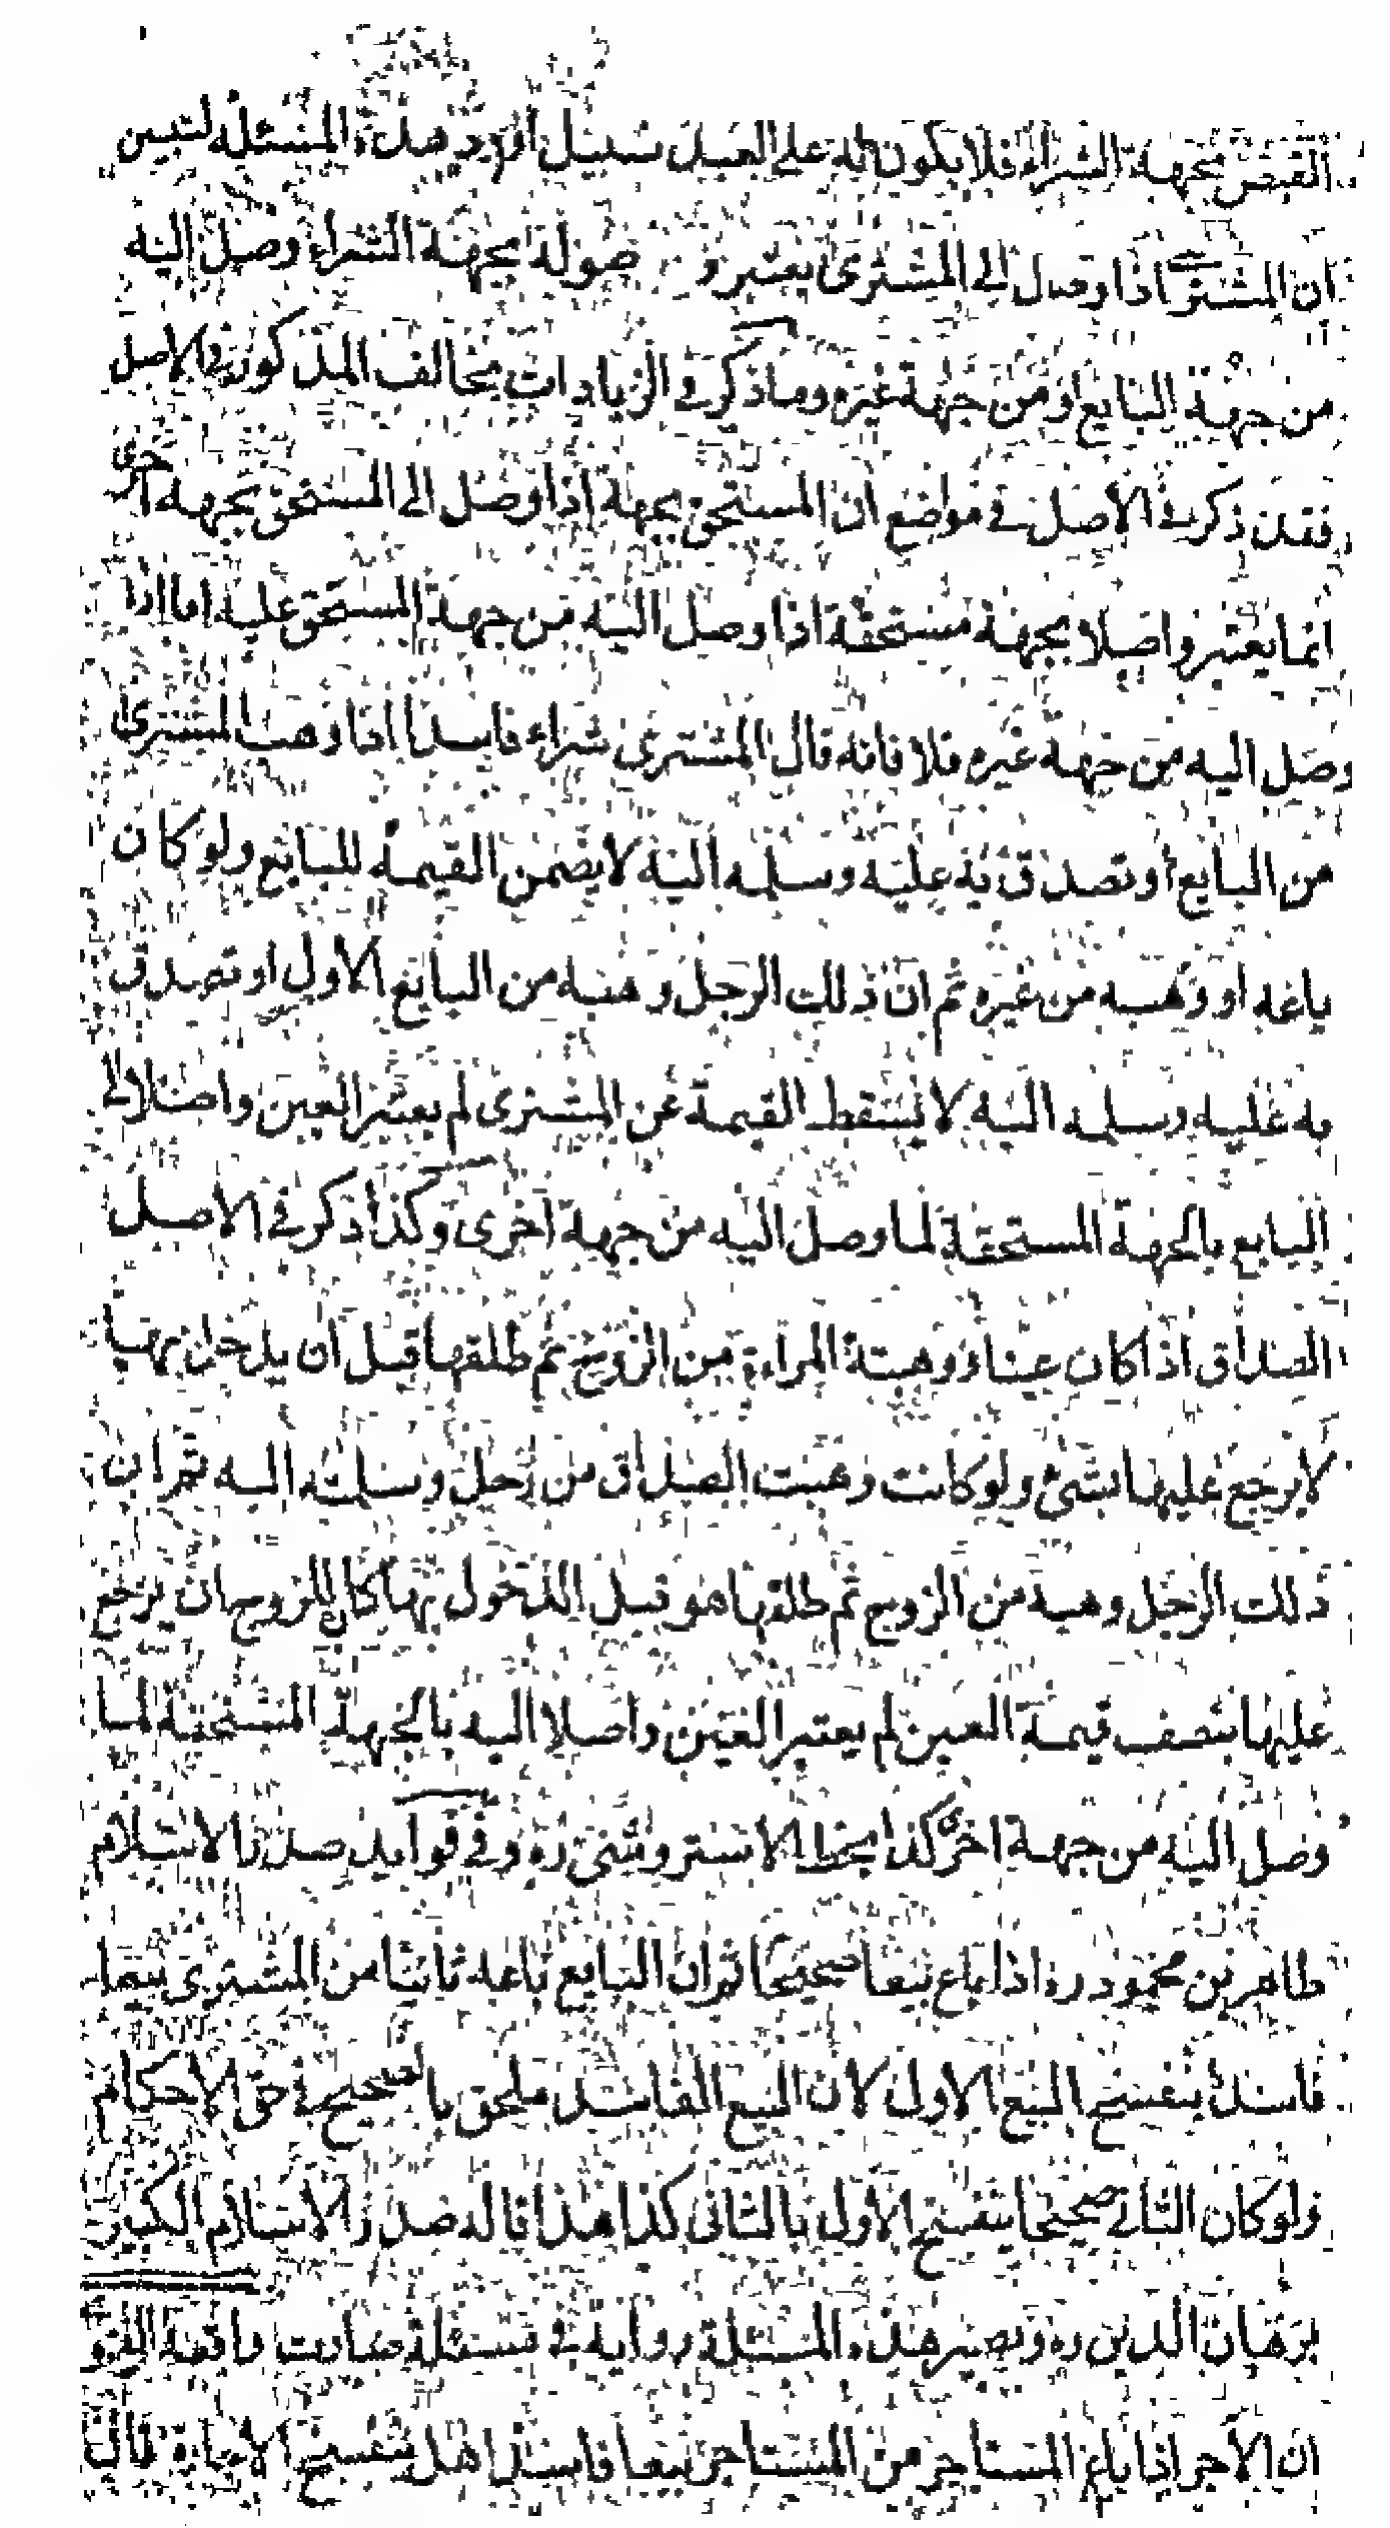 القبض بجهة الشراء فلا يكون له على العبد سبيل اذ يرد هذه المسئلة لتبين
ان المشترى اذا وصل الى المشترى يعتبر وصوله بجهة الشراء وصل اليه
من جهة البايع او من جهة غيره وما ذكر في الزيادات يخالف المذكور في الاصل
فقد ذكر في الاصل في مواضع ان المستحق بجهة اذا وصل الى المستحق بجهة اخرى
انما يعتبر واصلا بجهة مستحقة اذا وصل اليه من جهة المستحق عليه اما اذا
وصل اليه من جهة غيره فلا فانه قال المشترى شراء فاسدا اذا وهب المشترى
من البايع أو تصدق به عليه وسلمه اليه لا يضمن القيمة للبايع ولو كان
باعه او وهبه من غيره ثم ان ذلك الرجل وهبه من البايع الاول او تصدق
به عليه وسلمه اليه لا يسقط القيمة عن المشترى لم يعتبر العين واصلا الى
البايع بالجهة المستحقة لما وصل اليه من جهة اخرى وكذا ذكر في الاصل
الصداق اذا كان عينا ووهبته المراءة من الزوج ثم طلقها قبل ان يدخل بها
لا يرجع عليها بشئ ولو كانت وهبت الصداق من رجل وسلمته اليه ثم ان
ذلك الرجل وهبه من الزوج ثم طلقها هو قبل الدخول بها كان للزوج ان يرجع
عليها بنصف قيمة العين لم يعتبر العين واصلا اليه بالجهة المستحقة لما
وصل اليه من جهة اخرى كذا بخط الاستروشنى ره وفي فوايد صدر الاسلام
طاهر بن محمود ره اذا باع بيعا صحيحا ثم ان البايع باعه ثانيا من المشترى بيعا
فاسدا ينفسخ البيع الاول لان البيع الفاسد ملحق بالصحيح في حق الاحكام
ولو كان الثاني صحيحا ينفسخ الاول بالثانى كذا هذا قاله صدر الاسلام الكبير
برهان الدين ره ويصير هذه المسئلة رواية في مسئلة صارت واقعة
ان الآجر اذا باع المستاجر من المستاجر بيعا فاسدا هل ينفسخ الاجارة قال